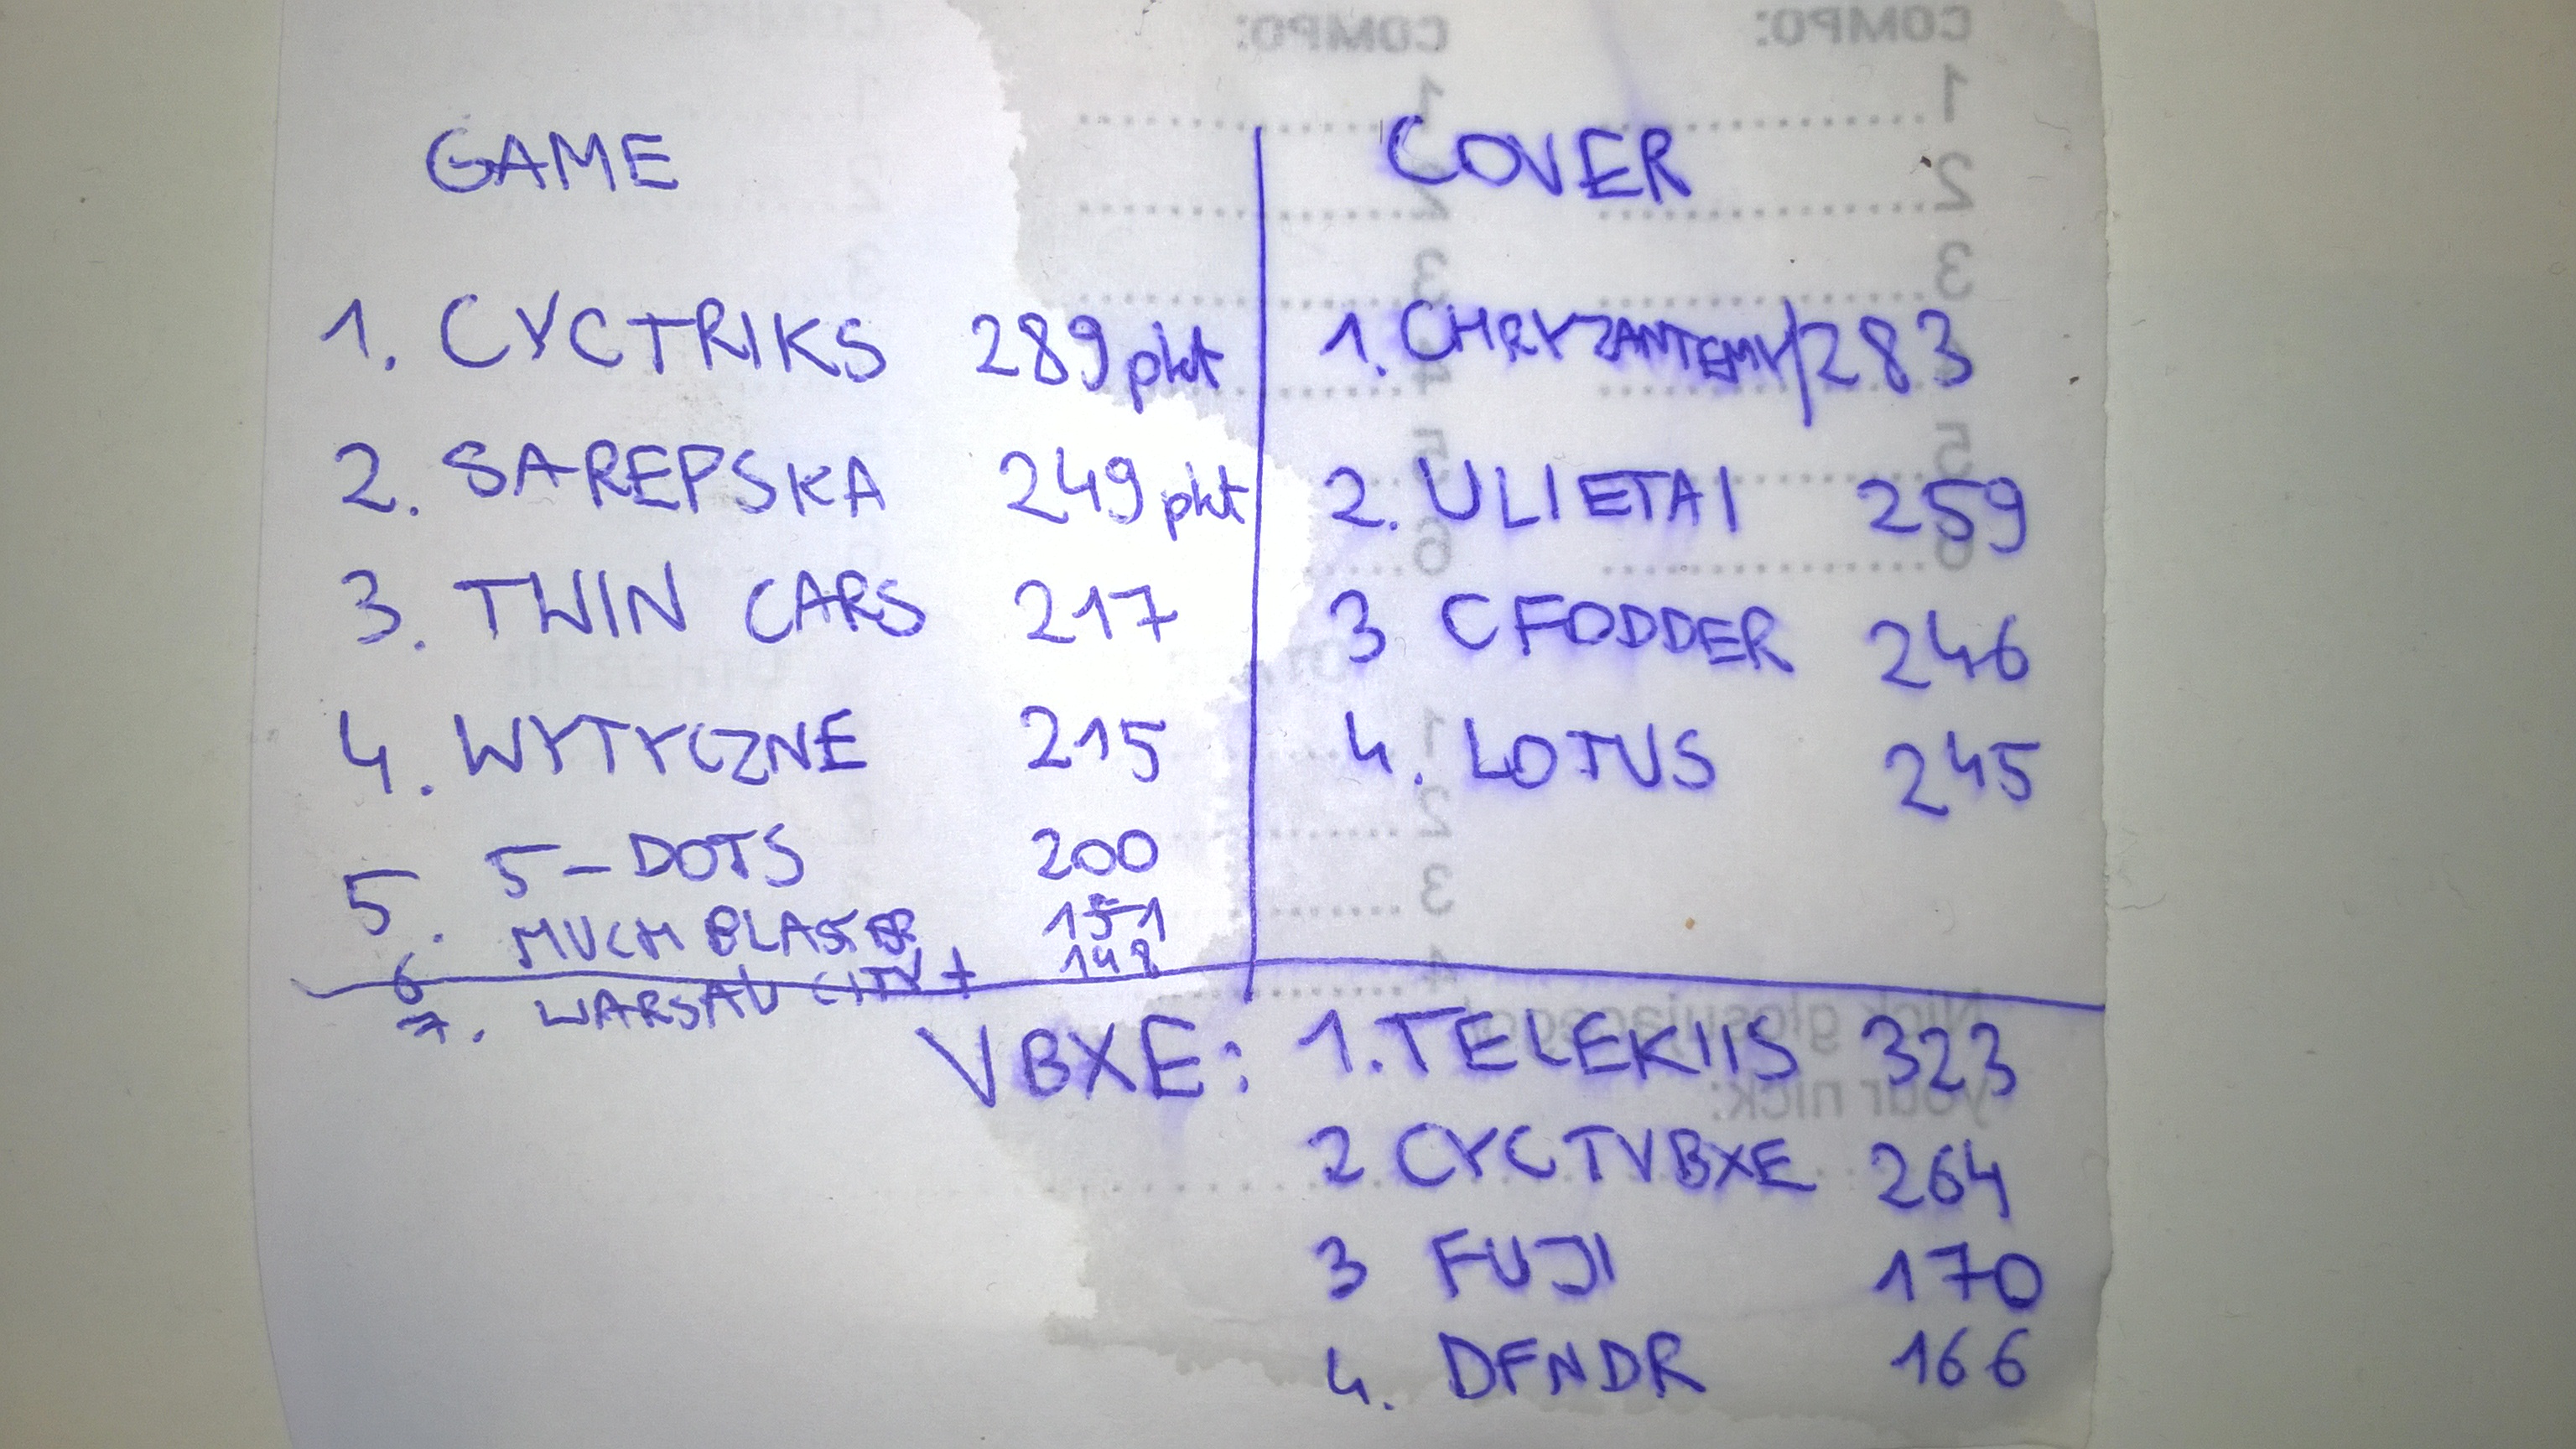 GAME
1. CYCTRIKS 289 pkt
2. SAREPSKA 249 pkt
3. TWIN CARS 217
4. WYTYCZNE 215
5. 5-DOTS 200
6 MUCH BLASTER 151
7. WARSAW CITY + 148
COVER
1. CHRYZANTEMY/283
2. ULIETAI 259
3 CFODDER 246
4. LOTUS 245
VBXE: 1. TELEKIIS 323
2 CYCTVBXE 264
3 FUJI 170
4. DFNDR 166
COMPO:
1
2
3
4
5
6
COMPO:
1
2
3
5
6
1
2
3
4
your nick: